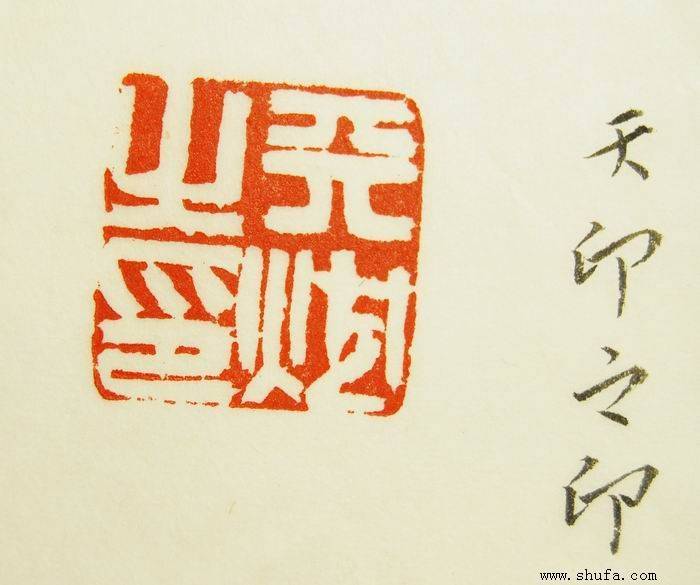 天印之印
天
之印
www.shufa.com